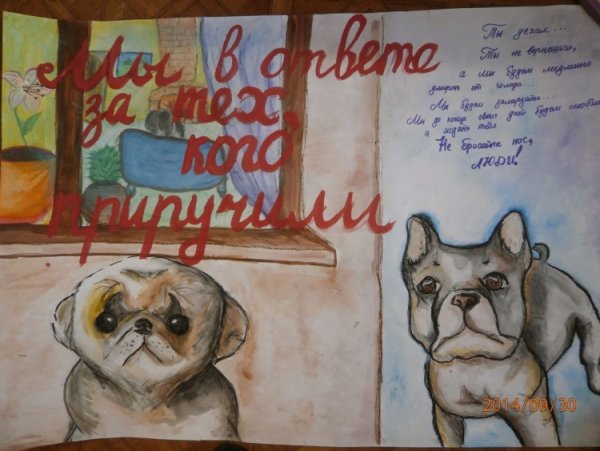 Мы в ответе
за тех,
кого
приручили
Ты уехал...
Ты не вернёшься,
а мы будем медленно
умирать от голода...
Мы будем замерзать...
Мы до конца своих дней будем любить
и ждать тебя
Не бросайте нас,
ЛЮДИ!
2014/09/30